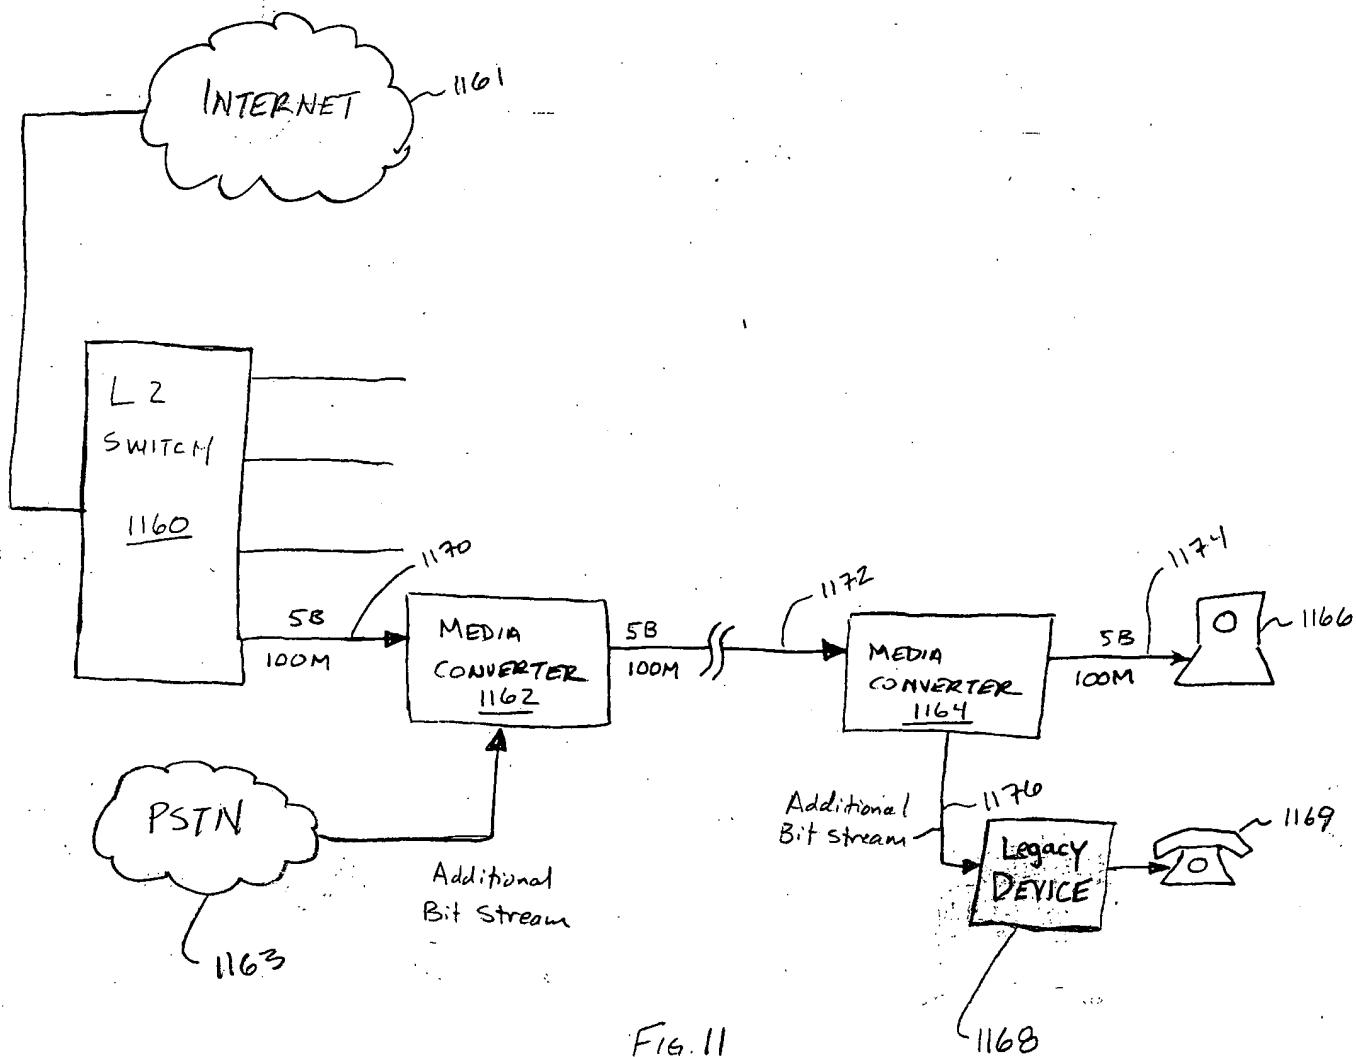 INTERNET
1161
L2
SWITCH
1160
1170
5B
100M
MEDIA
CONVERTER
1162
5B
100M
1172
MEDIA
CONVERTER
1164
1174
5B
100M
1166
PSTN
1163
Additional
Bit Stream
Additional
Bit Stream
1176
Legacy
DEVICE
1169
1168
FIG. 11